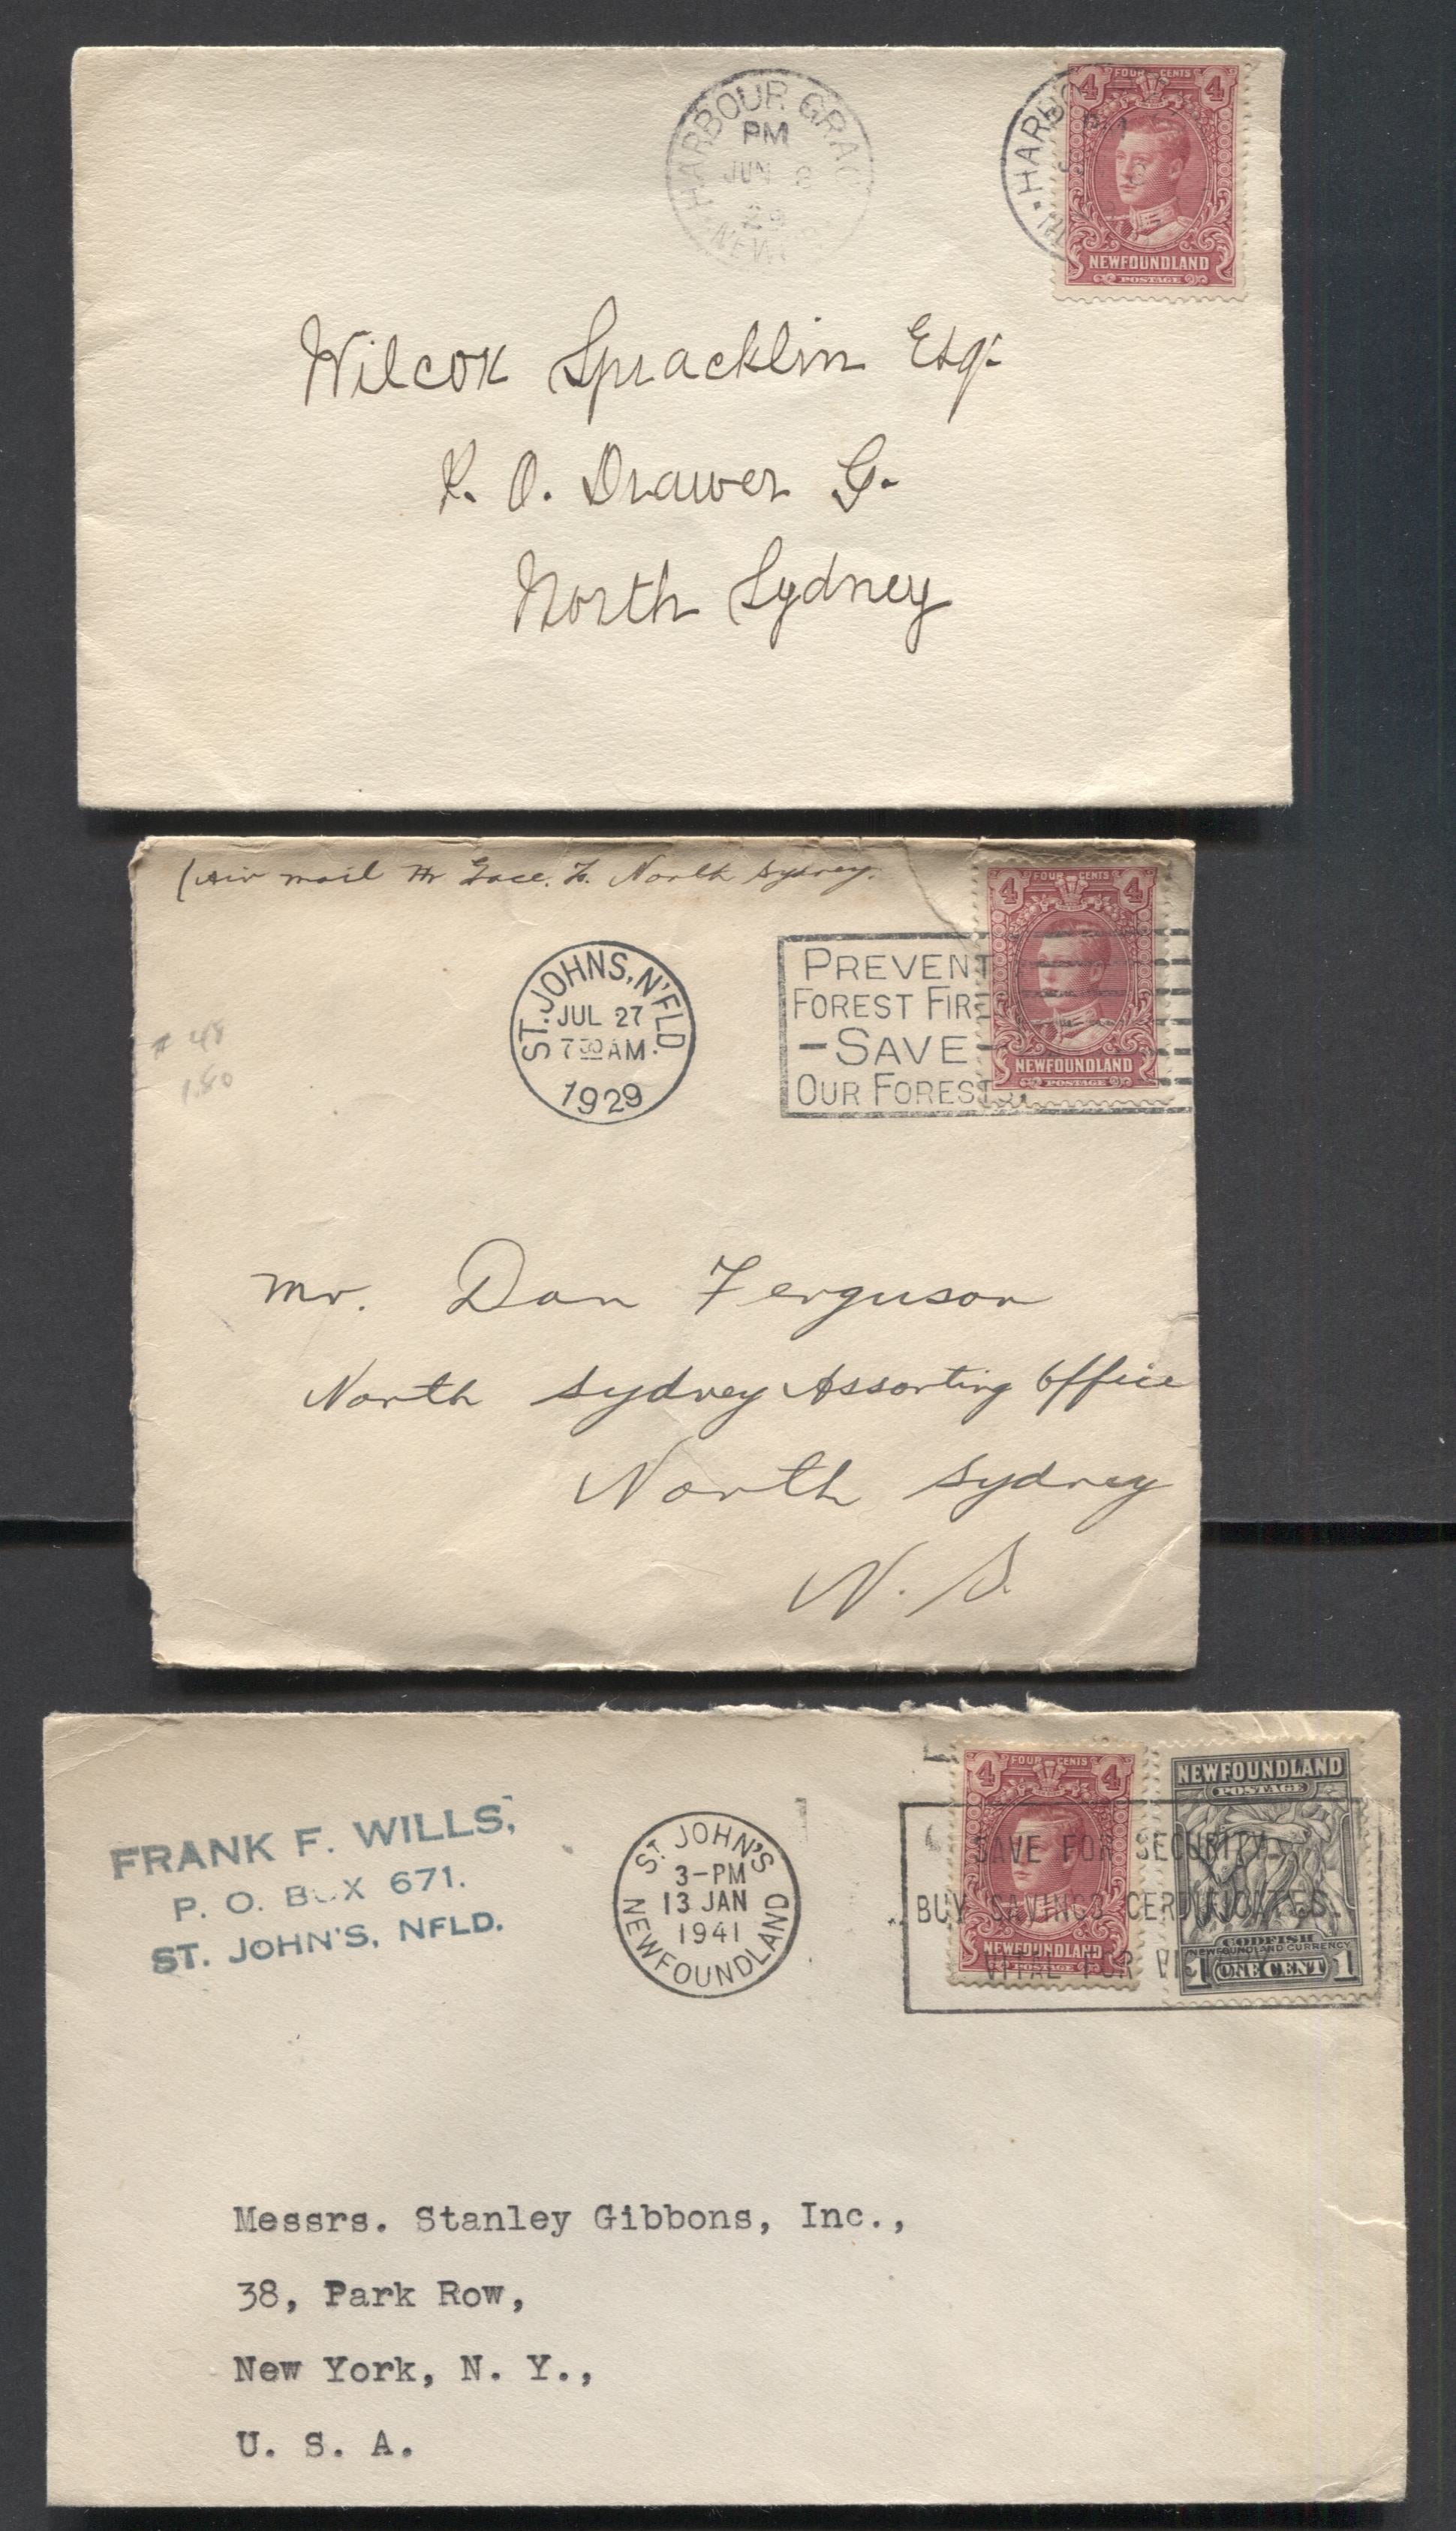 HARBOUR GRAC
PM
JUN 8
29
NEW
HARBO
FOUR CENTS
4 4
NEWFOUNDLAND
POSTAGE
Wilcox Spracklin Esq.
P. O. Drawer G.
North Sydney
(Air mail Hr Grace. to North Sydney.
4 FOUR CENTS 4
ST. JOHNS, N'FLD.
JUL 27
7 30 AM.
1929
PREVENT
FOREST FIRE
-SAVE-
OUR FOREST
NEWFOUNDLAND
POSTAGE
# 48
1.80
Mr. Dan Ferguson
North Sydney Assorting Office
North Sydney
N. S.
FRANK F. WILLS,
P. O. BOX 671.
ST. JOHN'S, NFLD.
ST. JOHN'S
3-PM
13 JAN
1941
NEWFOUNDLAND
4 FOUR CENTS 4
NEWFOUNDLAND
POSTAGE
NEWFOUNDLAND
POSTAGE
CODFISH
NEWFOUNDLAND CURRENCY
1 ONE CENT 1
SAVE FOR SECURITY
BUY SAVINGS CERTIFICATES
VITAL FOR VI
Messrs. Stanley Gibbons, Inc.,
38, Park Row,
New York, N. Y.,
U. S. A.